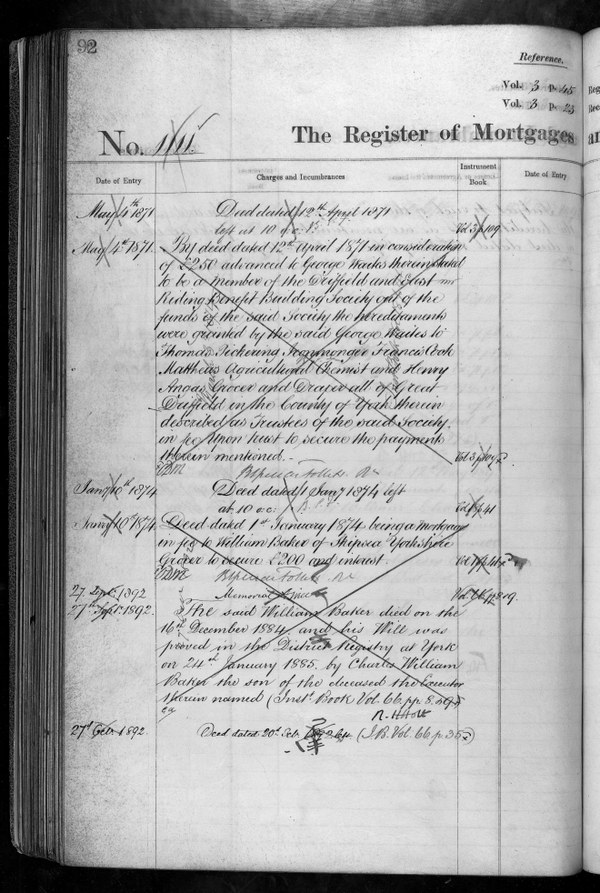 92
Reference.
Vol. 3 p. 45
Vol. 3 p. 23
No. 1111 The Register of Mortgages
Date of Entry Charges and Incumbrances Instrument Book. Date of Entry
May 4th 1871 Deed dated 12th April 1871
left at 10 a.m. Vol 3 p 109
May 4th 1871. By deed dated 12th April 1871 in consideration
of £250 advanced to George Waites therein stated
to be a member of the Driffield and East
Riding Benefit Building Society out of the
funds of the said Society the hereditaments
were granted by the said George Waites to
Thomas Pickering Ironmonger Francis Cook
Matthews Agricultural Chemist and Henry
Angas Grocer and Draper all of Great
Driffield in the County of York therein
described as Trustees of the said Society.
in fee upon trust to secure the payment
therein mentioned. Vol 3 p 109
Jany 10th 1874 Deed dated 1 Jany 1874 left
at 10 a.m. p 41
Jany 10th 1874. Deed dated 1st January 1874 being a mortgage
in fee to William Baker of Skipsea Yorkshire
Grocer to secure £200 and interest.
27 1892 Memorial
27th Septr 1892. The said William Baker died on the
16th December 1884. and his Will was
proved in the District Registry at York
on 24th January 1885. by Charles William
Baker the son of the deceased the Executor
therein named (Inst. Book Vol. 66. pp. 8. 9
R. Holt
27th 1892. Deed dated 20th (I.B. Vol. 66. p. 35